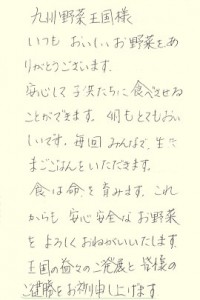 九州野菜王国様
いつも おいしいお野菜をあ
りがとうございます。
安心して子供たちに食べさせる
ことができます。卵もとてもおい
しいです。毎回みんなで、生た
まごごはんをいただきます。
食は命を育みます。これ
からも 安心安全な お野菜
を よろしくおねがいいたします。
王国の益々のご発展と 皆様の
ご健勝をお祈り申し上げます